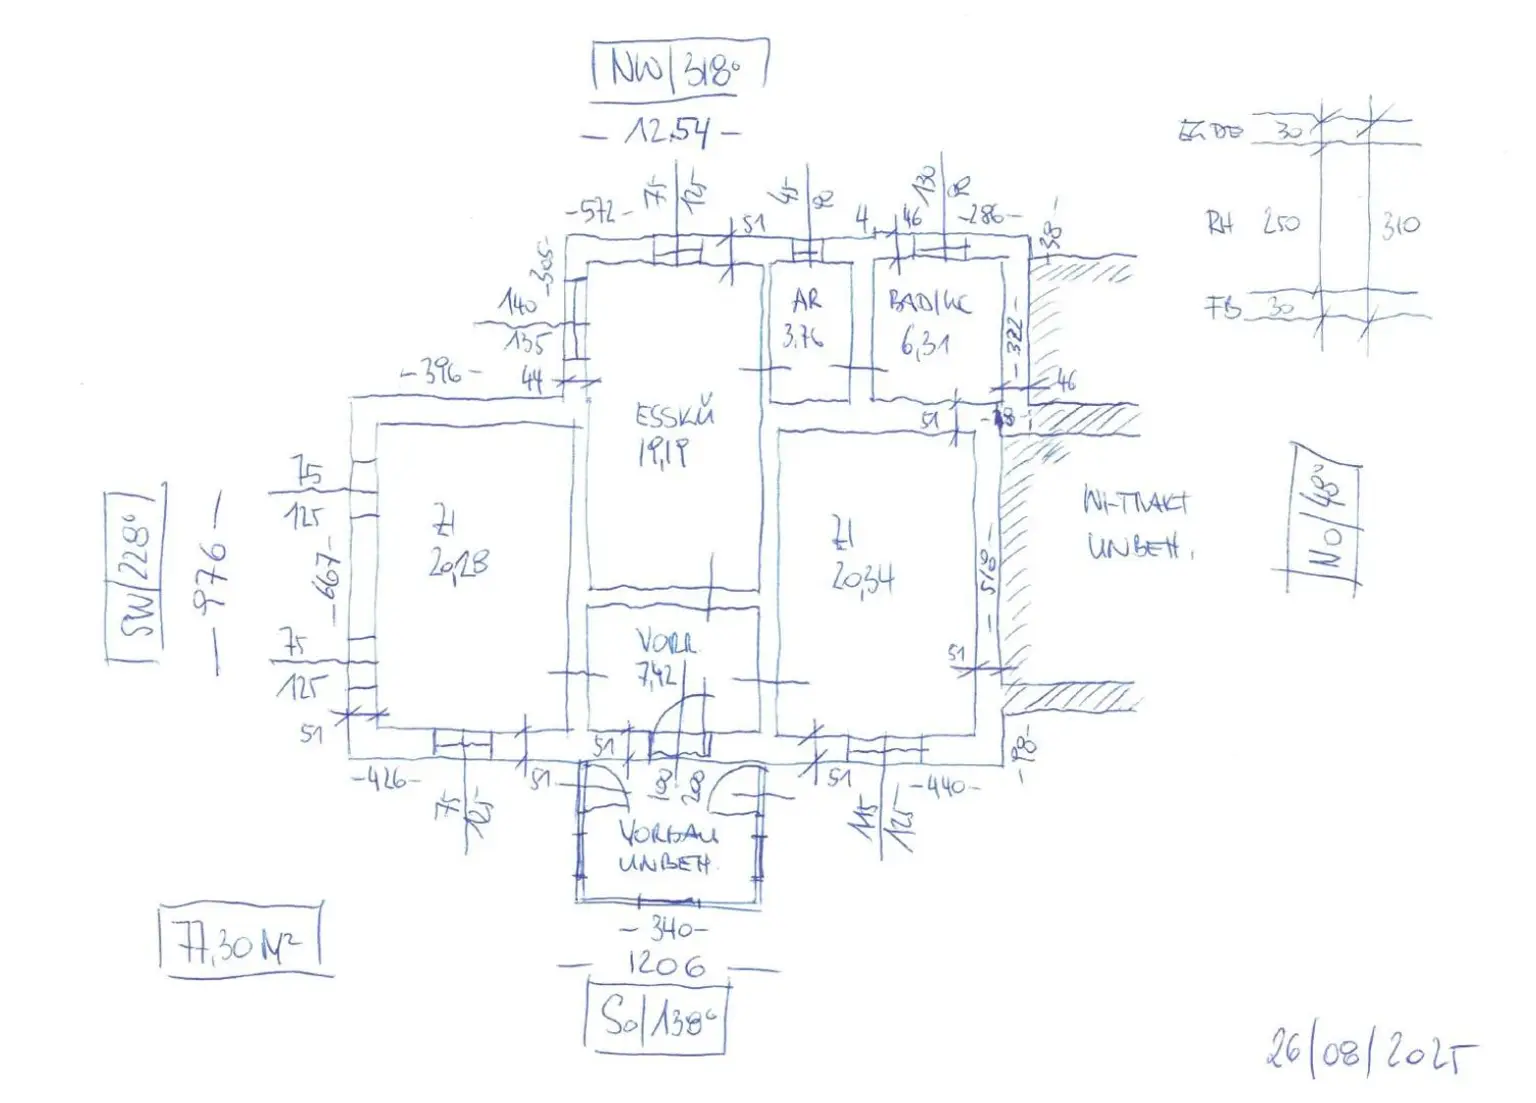 NW/318°
- 12.54 -
-572-
75
125
51
45
4
46
130
-286-
-38-
30
RH 250
310
FB 30
-305-
140
135
44
-396-
AR
3,76
BAD/WC
6,31
-322-
46
ESSKÜ
19,19
51
75
125
SW/228°
- 976 -
-667-
ZI
20,28
ZI
20,34
-518-
WI-TRAKT
UNBEH.
NO/48°
75
125
51
VORR.
7,42
51
-426-
75
125
51
51
VORBAU
UNBEH.
51
115
125
-440-
-98-
- 340 -
- 1206 -
SO/138°
77,30 M²
26/08/2025